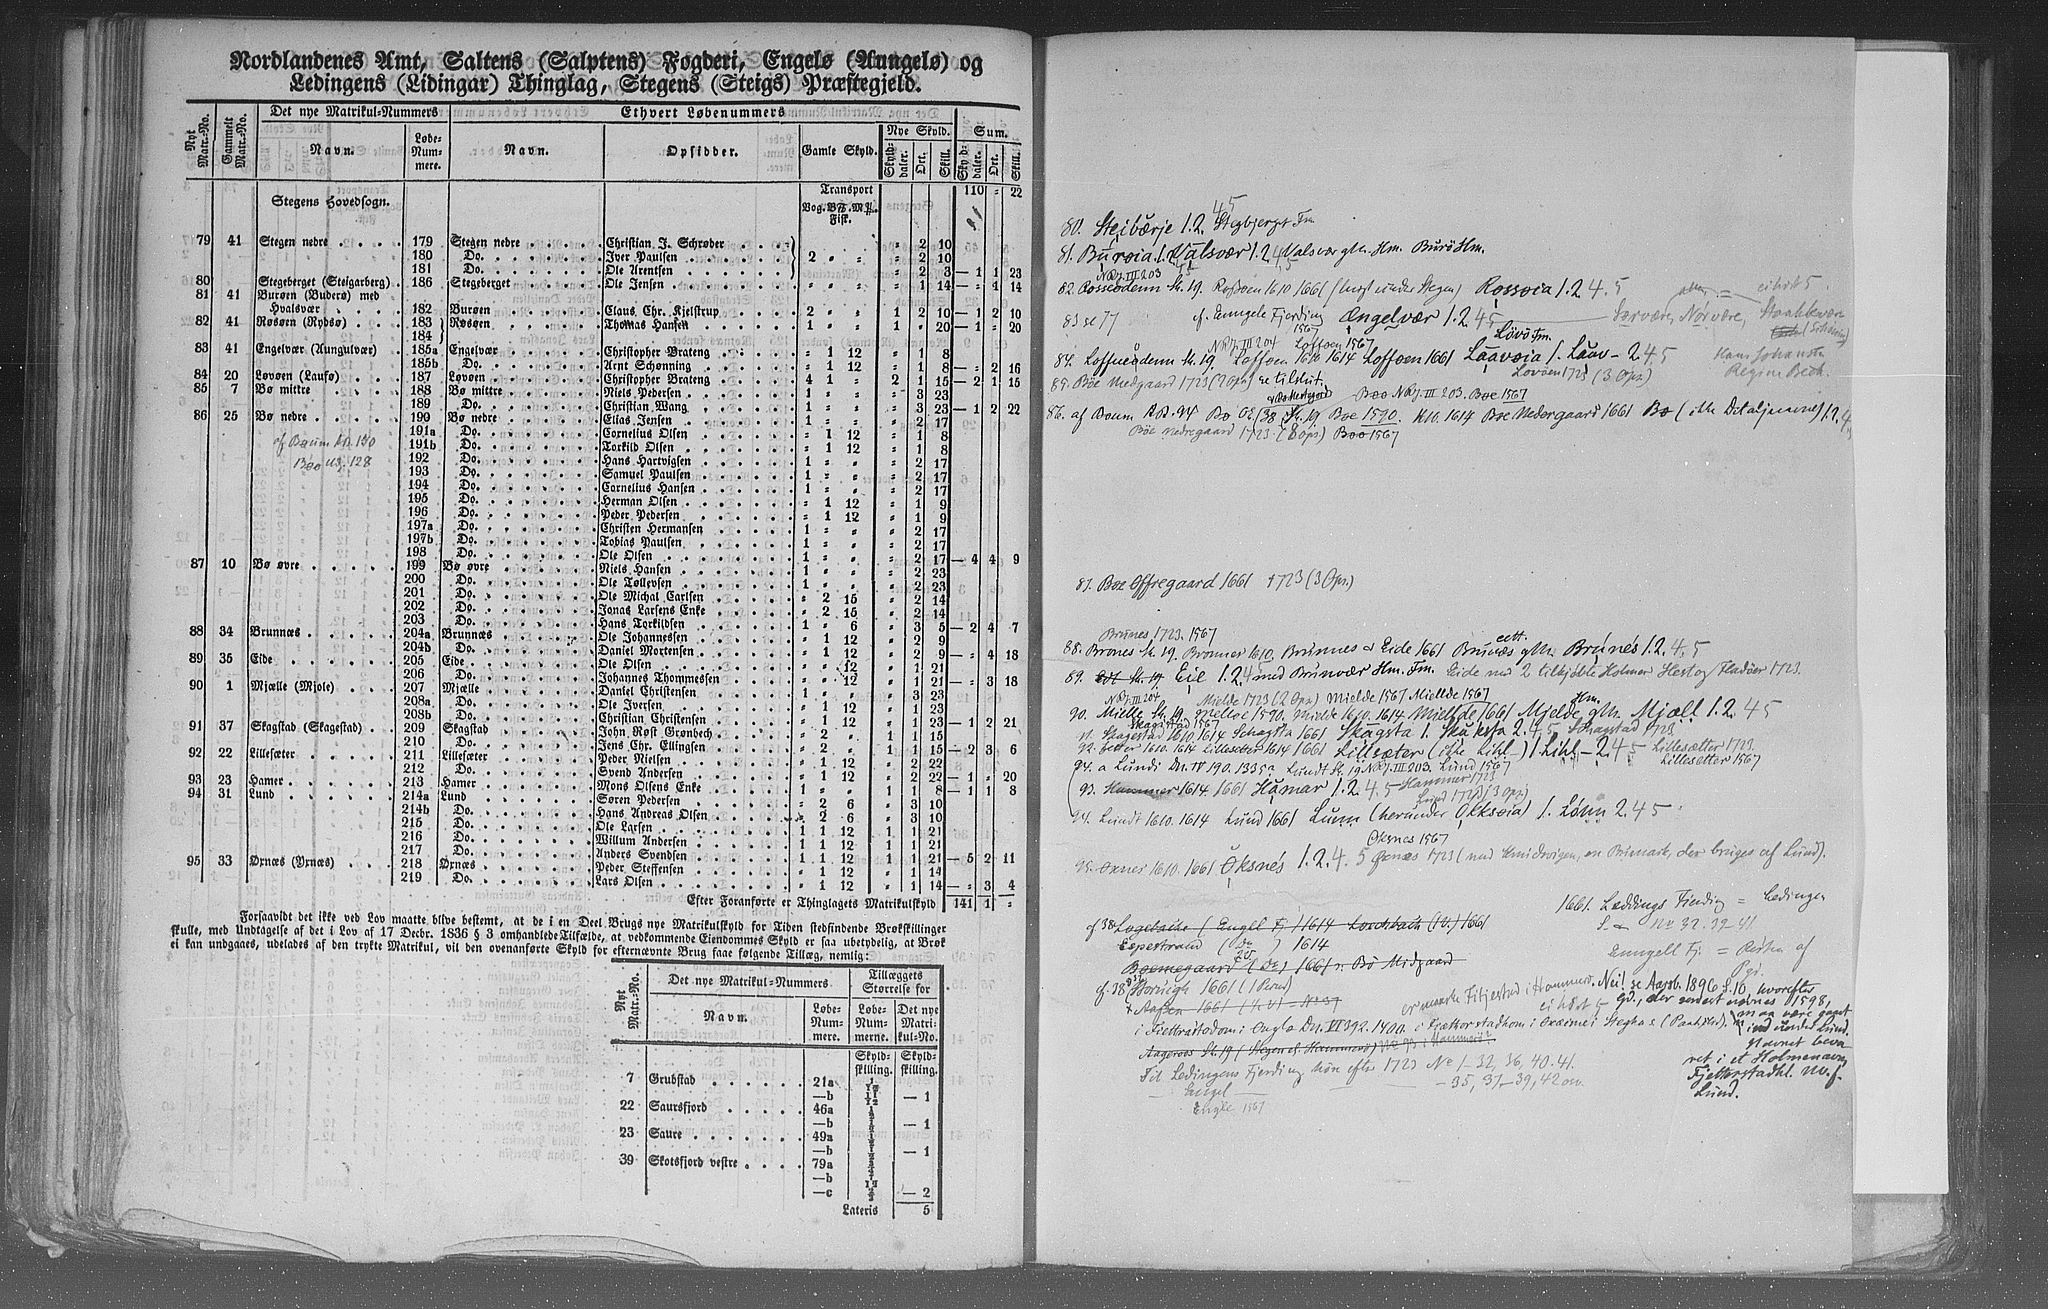 Nordlandenes Amt, Saltens (Salptens) Fogderi, Engelø (Aungelø) og
Ledingens (Lidingar) Thinglag, Stegens (Steigs) Præstegjeld.
Nyt Matr.-No. Gammelt Matr.-No. Det nye Matrikul-Nummers Ethvert Løbenummers Sum.
Navn. Løbe-Num-mere. Navn. Opsidder. Gamle Skyld. Nye Skyld. Skyld-daler. Ort. Skill. Skyld-daler. Ort. Skill.
Transport 110 = 22
Stegens Hovedsogn. Vog. Fisk.
79 41 Stegen nedre 179 Stegen nedre Christian J. Schrøder = 2 10
180 Do. Iver Paulsen 2 = = = 2 10
181 Do. Ole Arentsen = 2 3 — 1 1 23
80 Stegeberget (Steigarberg) 186 Stegeberget Ole Jensen = = = = 1 14 — = 4 14
81 41 Burøen (Buderø) med
Hvalsvær 182 Burøen Claus Chr. Kjelstrup 2 = = 1 2 10 — 1 2 10
82 41 Røsøen (Rydsø) 183 Røsøen Thomas Hansen 1 = = 1 = 20 — 1 = 20
184
83 41 Engelvær (Aungulvær) 185a Engelvær Christopher Brateng = 1 12 = 1 8
185b Do. Arnt Schønning = 1 12 = 1 8 — = 2 16
84 20 Løvøen (Laufø) 187 Løvøen Christopher Brateng 4 1 = 2 1 15 — 2 1 15
85 7 Bø mittre 188 Bø mittre Niels Pedersen 1 = = = 3 23
189 Do. Christian Wang 1 = = = 3 23 — 1 2 22
86 25 Bø nedre 199 Bø nedre Elias Jensen 1 = = = 2 17
191a Do. Cornelius Olsen = 1 12 = 1 8
af Baum AB 180 191b Do. Torkild Olsen = 1 12 = 1 8
192 Do. Hans Hartvigsen 1 = = = 2 17
193 Do. Samuel Paulsen 1 = = = 2 17
194 Do. Cornelius Hansen 1 = = = 2 17
195 Do. Herman Olsen = 1 12 = 1 9
196 Do. Peder Pedersen = 1 12 = 1 9
197a Do. Christen Hermansen 1 = = = 2 17
197b Do. Tobias Paulsen 1 = = = 2 17
198 Do. Ole Olsen 1 = = = 2 17 — 4 4 9
87 10 Bø øvre 199 Bø øvre Niels Hansen 1 = = = 2 23
200 Do. Ole Tollevsen 1 = = = 2 23
201 Do. Ole Michal Carlsen = 2 15 = 2 14
202 Do. Jonas Larsens Enke = 2 15 = 2 14
203 Do. Hans Torkildsen 1 = 6 = 3 5 — 2 4 7
88 34 Brunnæs 204a Brunnæs Ole Johannessen = 1 12 = 2 9
204b Do. Daniel Mortensen = 1 12 = 2 9 — = 4 18
89 35 Eide 205 Eide Ole Olsen = = 12 = 1 21
206 Do. Johannes Thommessen = = 12 = 1 21 — = 3 18
90 1 Mjælle (Mjole) 207 Mjælle Daniel Christensen 1 = = = 3 23
208a Do. Ole Iversen = 1 12 = 1 23
208b Do. Christian Christensen = 1 12 = 1 23 — 1 2 21
91 37 Skagstad (Skagestad) 209 Skagstad John Røst Grønbech = 2 = 1 1 15
210 Do. Jens Chr. Ellingsen = 2 = 1 1 15 — 2 3 6
92 22 Lillesæter 211 Lillesæter Peder Nielsen = 1 12 = 2 22
212 Do. Svend Andersen = 1 12 = 2 22 — 1 = 20
93 23 Hamer 213 Hamer Mons Olsens Enke 1 = = 1 1 8 — 1 1 8
94 31 Lund 214a Lund Søren Pedersen = 2 6 = 3 10
214b Do. Hans Andreas Olsen = 2 6 = 3 10
215 Do. Ole Larsen 1 1 12 1 1 21
216 Do. Willum Andersen 1 1 12 1 1 21
217 Do. Anders Svendsen 1 1 12 1 1 21 — 5 2 11
95 33 Ørnæs (Ørnæs) 218 Ørnæs Peder Steffensen = 1 12 = 1 14
219 Do. Lars Olsen = 1 12 = 1 14 — = 3 4
Efter Foranførte er Thinglagets Matrikulskyld 141 1 =
Forsaavidt det ikke ved Lov maatte blive bestemt, at de i en Deel Brugs nye Matrikulskyld for Tiden stedfindende Brøkskillinger
skulle, med Undtagelse af det i Lov af 17 Decbr. 1836 § 3 omhandlede Tilfælde, at vedkommende Eiendommes Skyld er saa ubetydelig, at Brøk
ei kan undgaaes, udelades af den trykte Matrikul, vil den ovenanførte Skyld for efternævnte Brug faae følgende Tillæg, nemlig:
Nyt Matr.-No. Det nye Matrikul-Nummers Tillæggets Størrelse for
Navn. Løbe-Num-mere. Løbe-Num-merne. Det nye Matri-kul-No.
Skyld-skilling. Skyld-skilling.
7 Grubstad 21a
—b — 1
22 Saursfjord 46a
—b — 1
23 Saure 49a
—b — 1
39 Skotsfjord vestre 79a
—b
—c — 2
Lateris 5
80. Steibærje 1.2. 45 Stegbjerget Fm.
81. Burøia 1. Valsvær 1.2.45 Valsvær gM. Hm. Burö Hm.
NRJ. III 203
82. Rosseødenn St. 19. Rossøen 1610 1661 (brugt under Stegen) Rossøia 1.2 4.5
83 se 77 cf. Eungele Fjerding 1567 Ængelvær 1.2 45
NRJ. III 204 Loffoen 1567 Lovö Fm.
84. Loffueødenn St. 19. Loffoen 1610 1614 Loffoen 1661 Laavøia 1. Laav- 2 45
Lovöen 1723 (3 Ops.)
Hans Johansen
Regine Bech.
85. Böe Medgaard 1723 (2 Ops) se tilslut. Boo NRJ. III 203. Boe 1567
86. af Boum AB. 94 Bo OE 138 St. 19 Boe 1590. 1610. 1614 Boe Nedergaard 1661 Bø (ikke Detaljnavne) 1.2. 45
Böe nedregaard 1723 (8 ops) Boo 1567
87. Boe Offregaard 1661 1723 (3 Ops.)
Brunes 1723. 1567
88. Brones St. 19. Bronner 1610. Brunnes & Eide 1661 Brunæs gM. Brúnes 1.2. 4.5
89. Edt St. 19 Eie 1.2 45 med Brunvær Hm. Fm. Eide med 2 tilhjølte Holmer Hest og Fladöer 1723.
NRJ. III 204 Mielde 1723 (2 Ops) Mielde 1567 Miellde 1567
90. Mielle St. 19. Melloe 1590. Mielde 1610. 1614 Mielde 1661 Mjelde gM. Hm. Mjæll 1.2. 45
Skagstad 1567
91. Skagestad 1610 1614 Schagsta 1661 Skagsta 1. Skaksta 2. 4.5 Schagstad 1723
92. Setter 1610. 1614 Lillesetter 1614 1661 Lillsæter (ikke Lihl-) 1 Lihl- 2 4 5 Lillesætter 1723.
Lillesetter 1567
94. a Lundi Dn. IV 190. 1335a Lundt St. 19 NRJ. III 203. Lund 1567
93. Hammer 1614. 1661 Hamar 1.2. 4.5 Hammer 1723
Lund 1723 (3 Ops)
94. Lundt 1610. 1614 Lund 1661 Lunn (herunder Økksøia) 1. Lönn 2 45
Oksnes 1567
95. Oxnes 1610. 1661 Öksnés 1.2. 4. 5 Öxnæs 1723 (med Smidvigen, en Bumark, der bruges af Lund).
1661. Læddings Fjerding = Ledingen
No 32. 39-41
Eungell Fj. = Resten af
gj.
Espestrand 1614
Boemegaard (de) 1661 : Bö Midgaard
i Fjettrastodom i Engle Dn. VI 392. 1400.
Navnet beva-
ret i et Holmenavn
Fjetterstadhl. NV. f.
Lund.
Til Ledingens Fjerding hör efter 1723 No 1-32, 36, 40. 41.
— Engel — — 35, 37-39, 42 osv.
Engle 1567